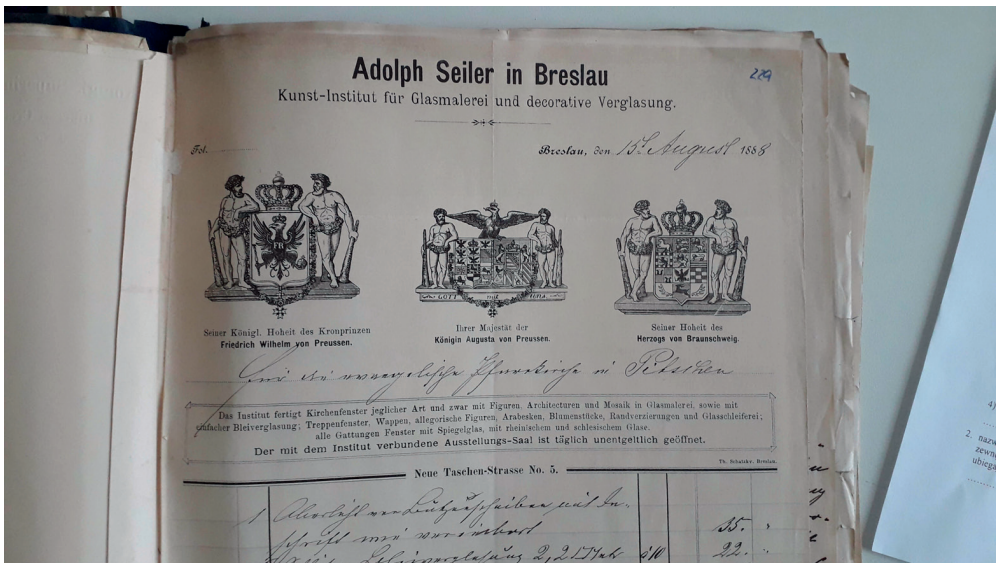 Adolph Seiler in Breslau
229
Kunst-Institut für Glasmalerei und decorative Verglasung.
Fol.
Breslau, den 15t August 1888
FR
GOTT mit UNS.
Seiner Königl. Hoheit des Kronprinzen
Friedrich Wilhelm von Preussen.
Ihrer Majestät der
Königin Augusta von Preussen.
Seiner Hoheit des
Herzogs von Braunschweig.
Für die evangelische Pfarrkirche in Pitschen
Das Institut fertigt Kirchenfenster jeglicher Art und zwar mit Figuren, Architecturen und Mosaik in Glasmalerei, sowie mit
einfacher Bleiverglasung; Treppenfenster, Wappen, allegorische Figuren, Arabesken, Blumenstücke, Randverzierungen und Glasschleiferei;
alle Gattungen Fenster mit Spiegelglas, mit rheinischem und schlesischem Glase.
Der mit dem Institut verbundene Ausstellungs-Saal ist täglich unentgeltlich geöffnet.
Th. Schatzky, Breslau.
Neue Taschen-Strasse No. 5.
1 Oberlicht von Butzenscheiben mit In-
schrift wie vereinbart 35.
Bleiverglasung 2,2 à 10 22.
4)
2. nazw
zewn
ubiega